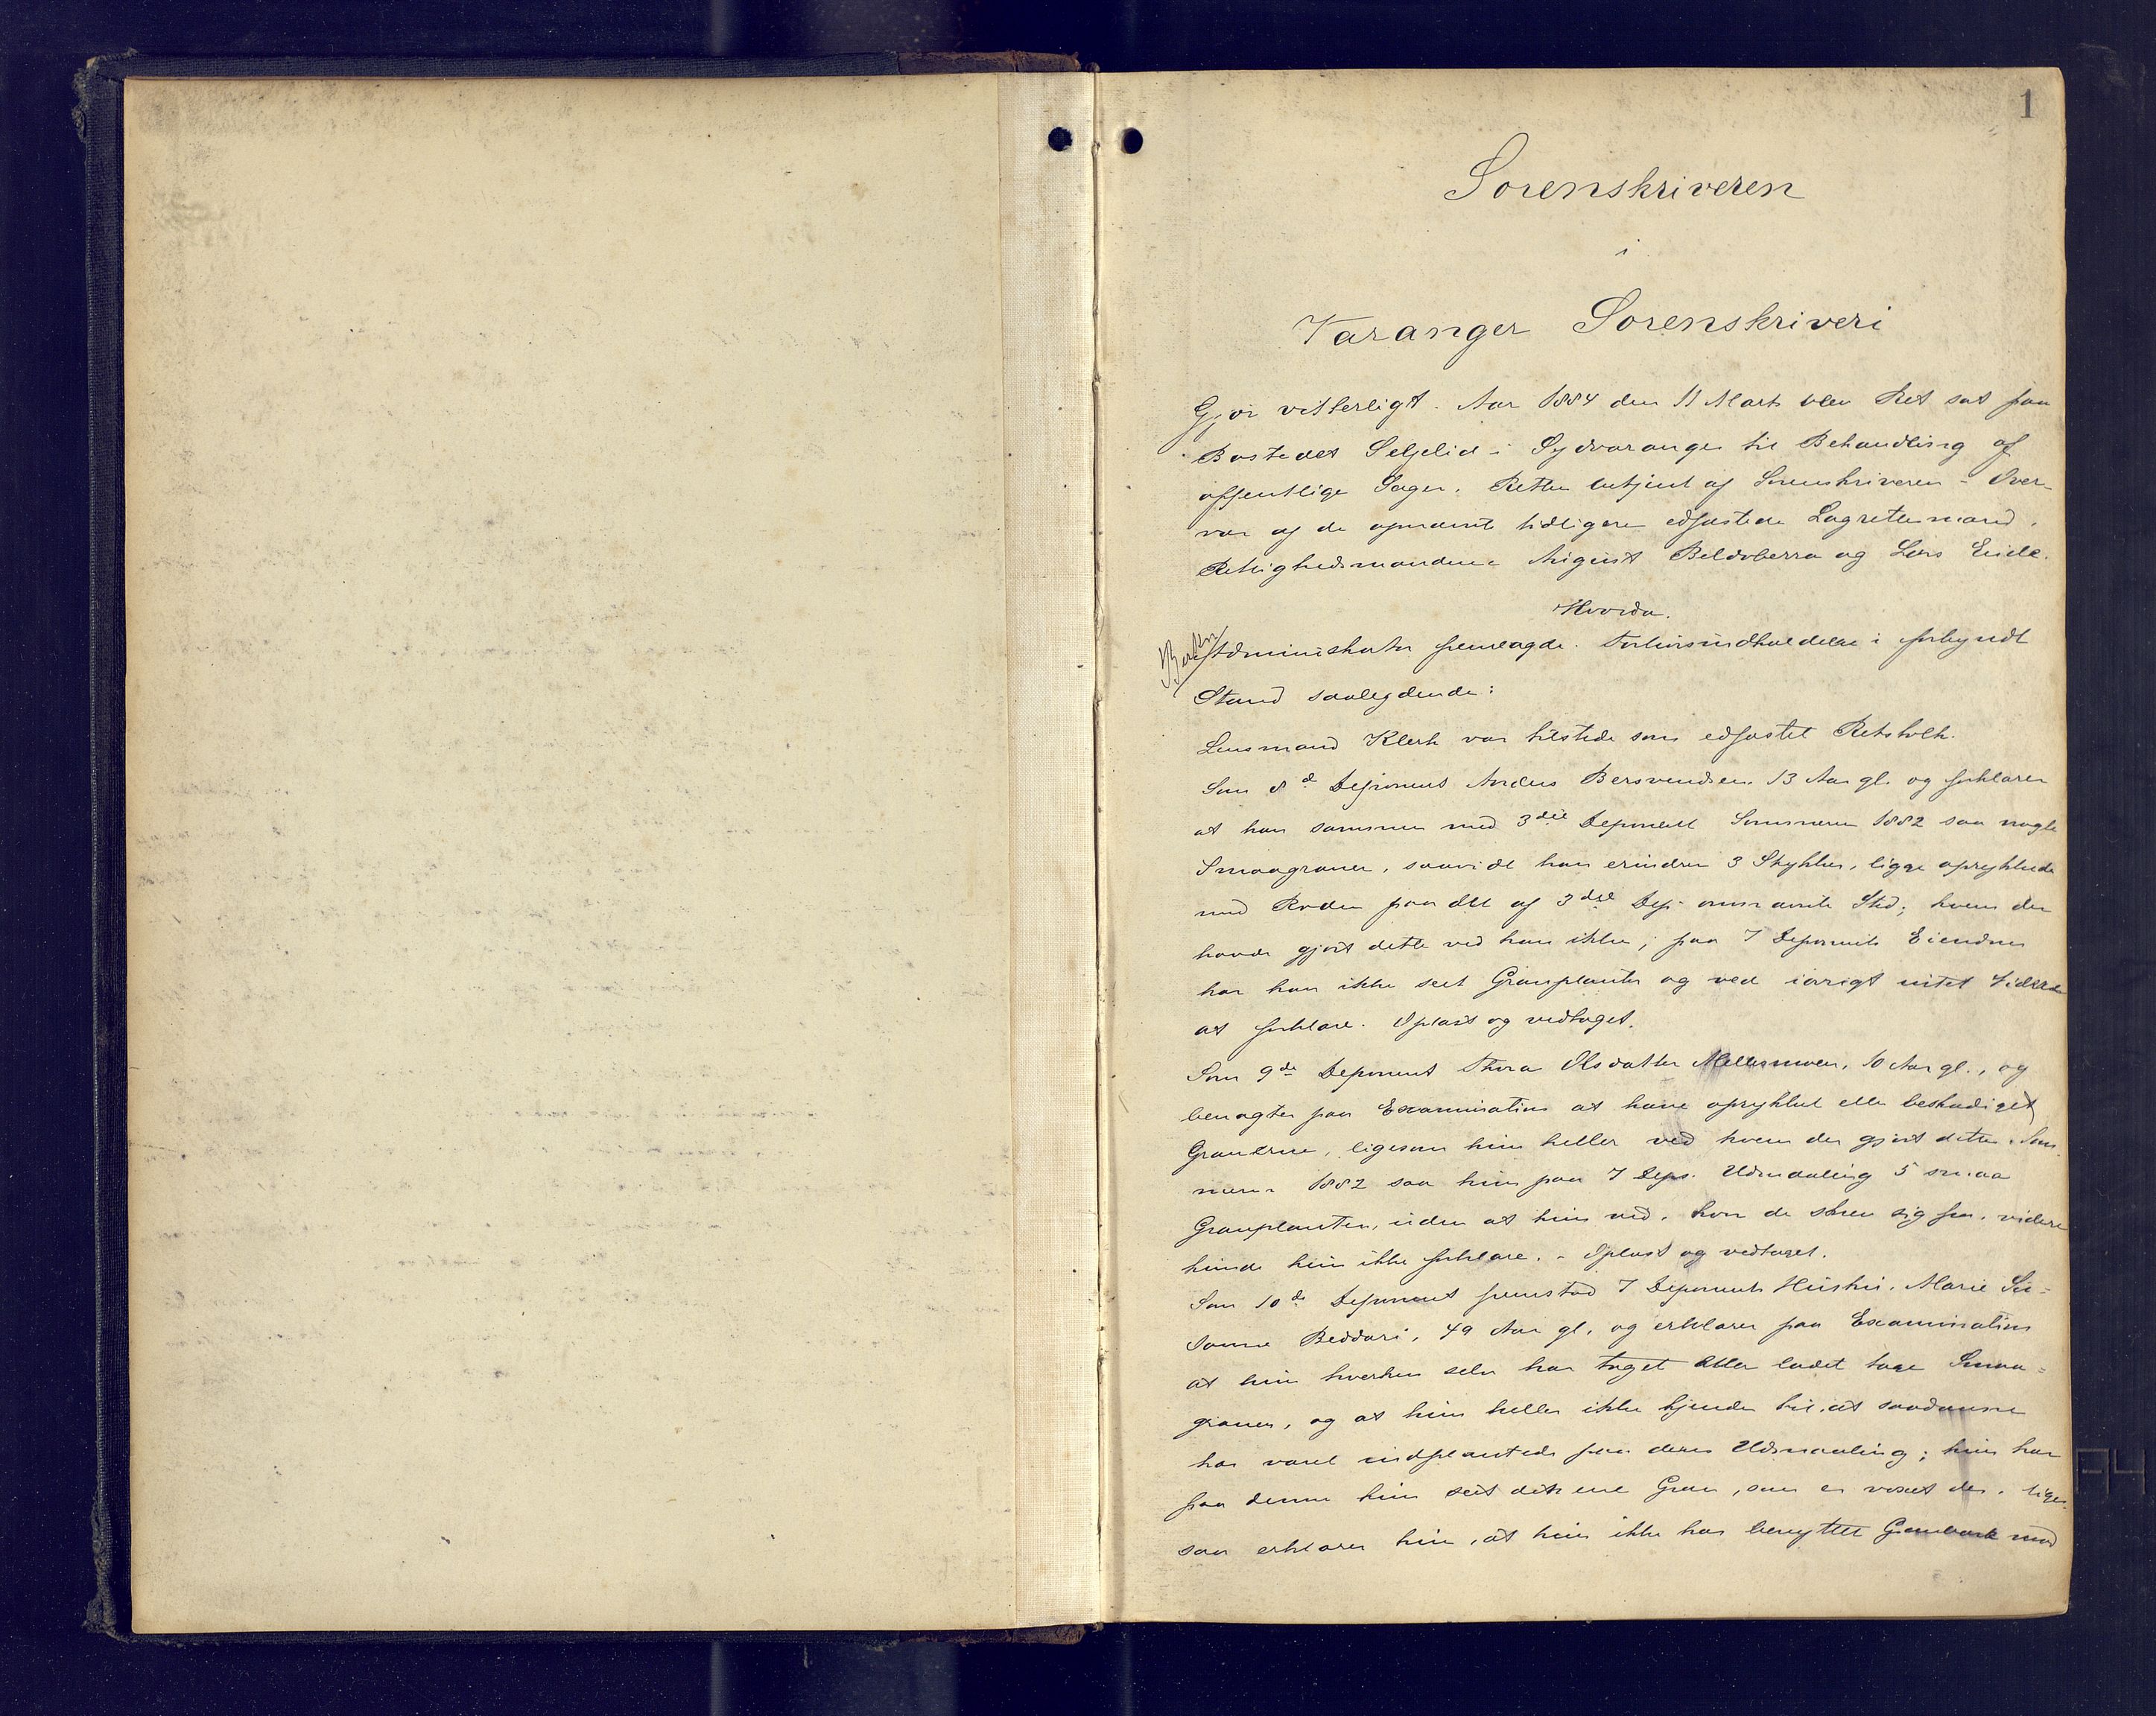 1
Sorenskriveren
i
Varanger Sorenskriveri
Gjør vitterligt. Aar 1884 den 11 Marts blev Ret sat paa
Bostedet Seljelid i Sydvaranger til Behandling af
offentlige Sager. Retten betjent af Sorenskriveren i Over-
vær af de opnævnte tidligere edfæstede Lagrettemænd,
Rettighedsmændene August Beldoberra og Lars Eide.
Hvorda.
Administrator fremlagde Forhørsindkaldelse i forkyndt
Stand saalydende:
Lensmand Klerk var tilstede som edfæstet Retstolk.
Som 8d Deponent Anders Bersvendsen 13 Aar gl. og forklarer
at han sammen med 3die Deponent Sommeren 1882 saa nogle
Smaagraner, saavidt han erindrer 3 Stykker, ligge oprykkede
med Roden paa det af 3die Dep. omnævnte Sted; hvem der
havde gjort dette ved han ikke; paa 7 Deponents Eiendom
har han ikke seet Granplanter og ved iøvrigt intet videre
at forklare. Oplæst og vedtaget.
Som 9de Deponent Thora Olsdatter Mellemmoen, 10 Aar gl., og
benægter paa Examination at have oprykket eller beskadiget
Granerne, ligesom hun heller ved hvem der gjort dette. Som-
meren 1882 saa hun paa 7 Deps. Udmaaling 5 smaa
Granplanter, uden at hun ved, hvor de skrev sig fra, videre
kunde hun ikke forklare. - Oplæst og vedtaget.
Som 10de Deponent fremstod 7 Deponents Hustru, Marie Su-
sanne Beddari, 49 Aar gl. og erklærer paa Examination
at hun hverken selv har taget eller ladet tage Smaa-
graner, og at hun heller ikke kjender til, at saadanne
har været indplantede paa deres Udmaaling; hun har
paa denne kun seet den ene Gran, som er voxet der. Lige-
saa erklærer hun, at hun ikke har benyttet Granbark med